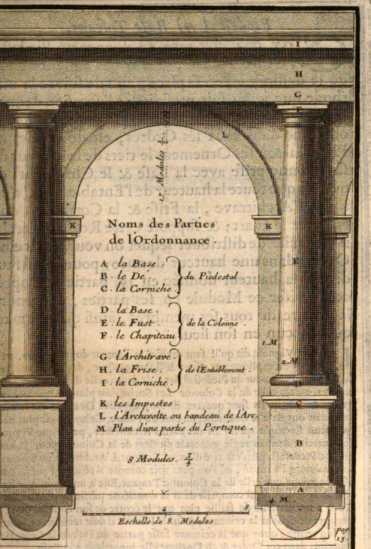 I
H
G
F
L
Modules
K
K
Noms des Parties
de l'Ordonnance
A la Base.
B le De.
C la Corniche.
du Piedestal
E
D la Base.
E le Fust
F le Chapiteau
de la Colonne.
1.M
2.M
G l'Architrave
H la Frise.
I la Corniche.
de l'Entablement.
D
C
K les Impostes.
L l'Archivolte ou bandeau de l'Arc.
M Plan d'une partie du Portique.
B
8 Modules. 3/4
A
M
Eschelle de 8 Modules
pag